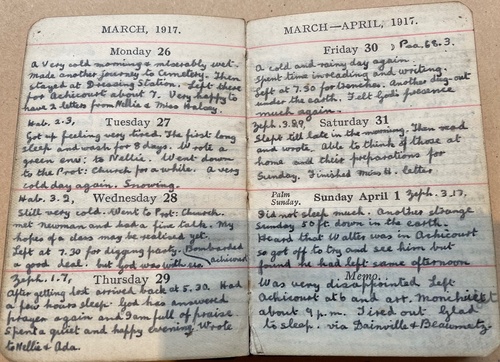 MARCH, 1917.
Monday 26
A very cold morning & miserably wet.
Made another journey to Cemetery. Then
stayed at Dressing Station. Left there
for Achicourt about 7. Very happy to
have 2 letters from Nellie & Miss Halsey.
Hab. 2.3,
Tuesday 27
Got up feeling very tired. The first long
sleep and wash for 8 days. Wrote a
green env: to Nellie. Went down
to the Prot: Church for a while. A very
cold day again. Snowing.
Hab. 3.2,
Wednesday 28
Still very cold. Went to Prot: Church.
met Newman and had a fine talk. My
hopes of a class may be realised yet.
Left at 7.30 for digging party. Bombarded
a good deal! but God was with us
Achicourt
Zeph. 1.7,
Thursday 29
After getting lost arrived back at 5.30. Had
a few hours sleep. God has answered
prayer again and I am full of praise.
Spent a quiet and happy evening. Wrote
to Nellie & Ada.
MARCH—APRIL, 1917.
Friday 30
Psa. 68.3.
A cold and rainy day again.
Spent time in reading and writing.
Left at 7.30 for trenches. Another dug-out
under the earth. Felt God's presence
much again.
Zeph. 3.29
Saturday 31
Slept till late in the morning. Then read
and wrote. Able to think of those at
home and their preparations for
Sunday. Finished Miss H. letter
Palm
Sunday.
Sunday April 1
Zeph. 3.17,
Did not sleep much. Another strange
Sunday 50 ft down in the earth.
Heard that Walter was in Achicourt
so got off to try and see him but
found he had left same afternoon
Memo.
Was very disappointed Left
Achicourt at 6 and arr.
about 9 p.m. Tired out Glad
to sleep. via Dainville & Beaumetz